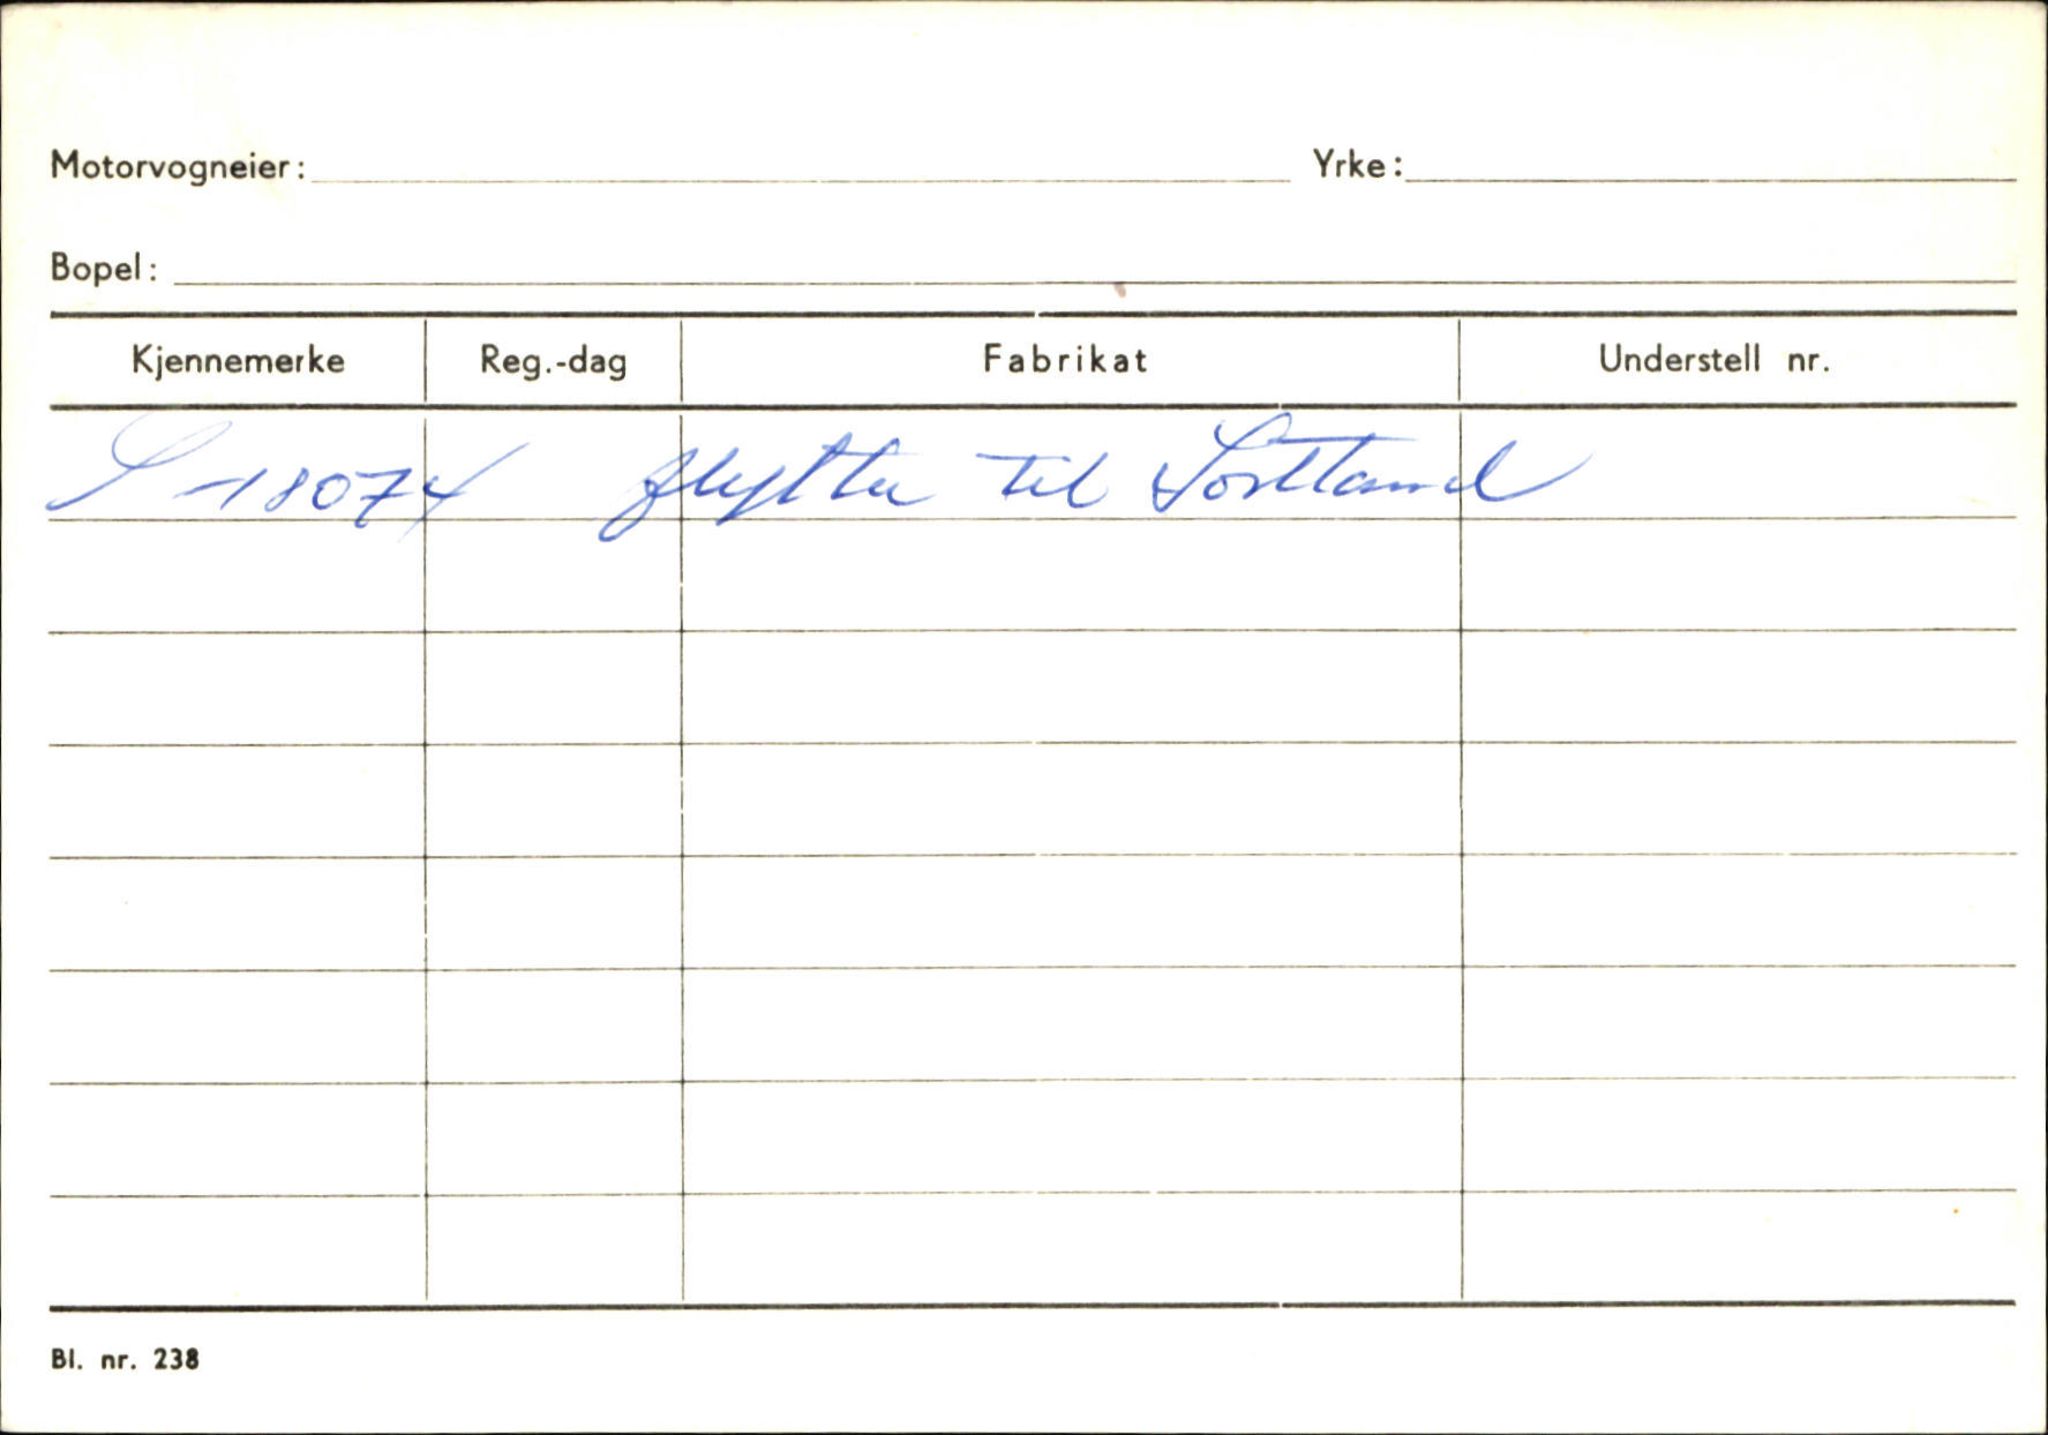 Motorvogneier: Yrke:
Bopel:
Kjennemerke Reg.-dag Fabrikat Understell nr.
S-18074 flytta til Sortland
Bl. nr. 238